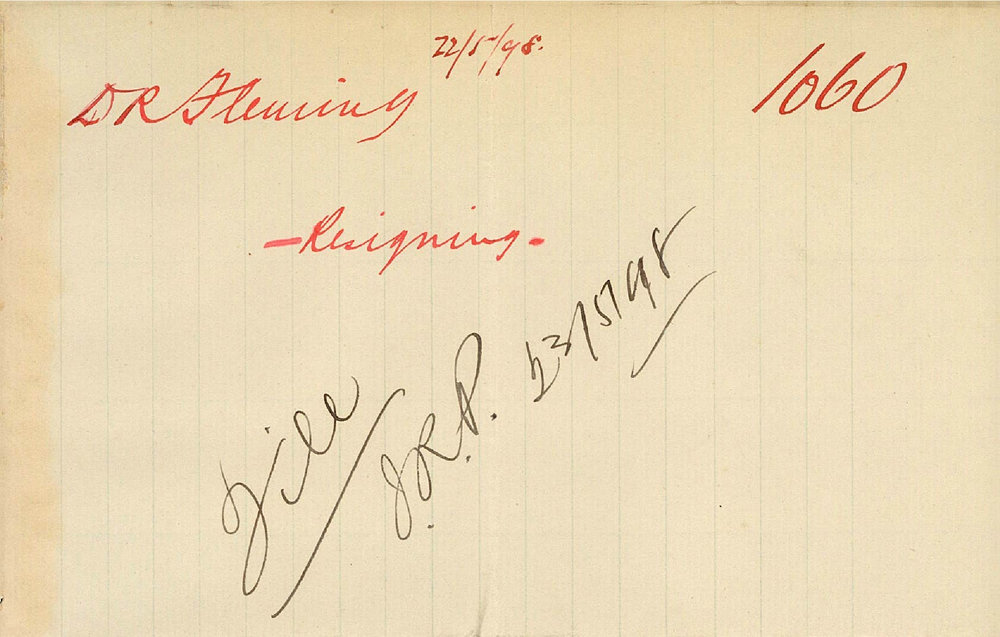 22/5/98.
DR Fleming
1060
- Resigning -
File
J.R.P. 23/5/98